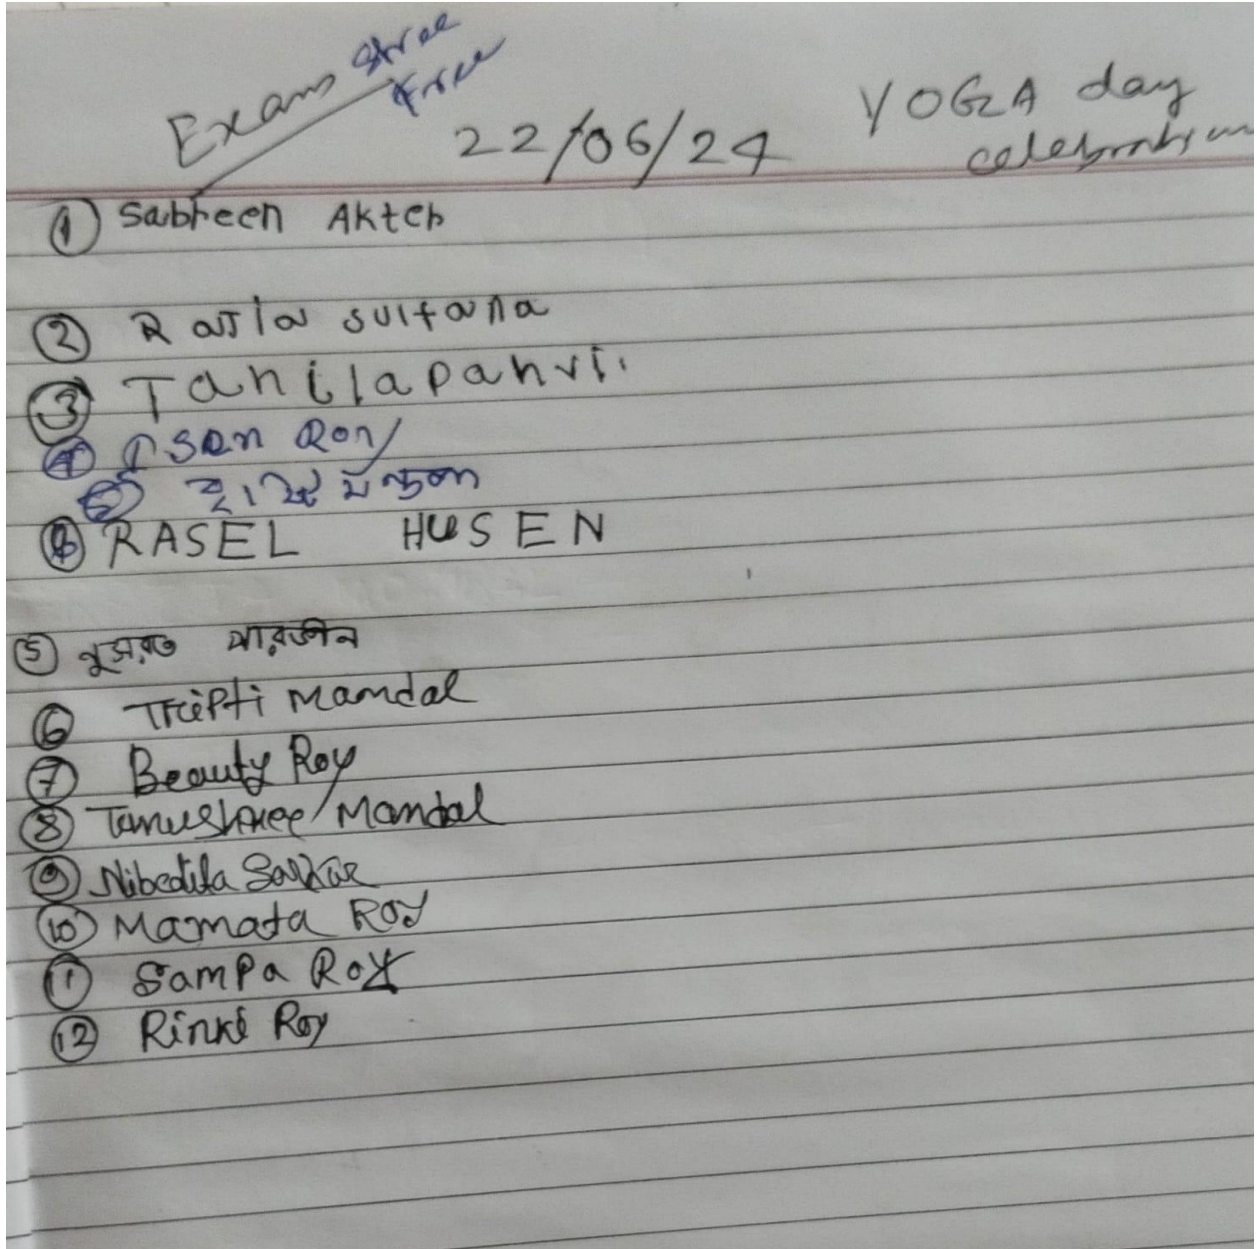 Exam Stree
Free
22/06/24
YOGA day
celebration
① Sabreen Akter
② Razia sultana
③ Tanila parvi.
④
⑤
④ RASEL HUSEN
⑤ নুসরত পারভীন
⑥ Tripti Mandal
⑦ Beauty Roy
⑧ Tanushree Mandal
⑨ Nibedita Sarkar
⑩ Mamata Roy
⑪ Sampa Roy
⑫ Rinki Roy